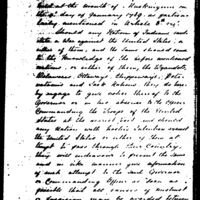 held at the mouth of Muskingum on
the day of January 1789, as particu-
larly mentioned in Article 2d.
Should any Nation of Indians med-
itate a war against the United States, or
either of them, and the same should come
to the knowledge of the before mentioned
nations, or either of them, the Wyandots,
Delawares Ottawas, Chippeways, Pota-
watimas and Sack Nations they do here-
by engage to give notice thereof to the
Governor or in his absence to the Officer
Commanding the troops of the United
States at the nearest Post and should
any Nation with hostile Intentions against
the United States or either of them at-
tempt to pass through their Country,
they will endeavour to prevent the same
and in like manner give information
of such attempt to the said Governor
or Commanding Officer as soon as
possible that all causes of mistrust
or suspicion may be avoided between